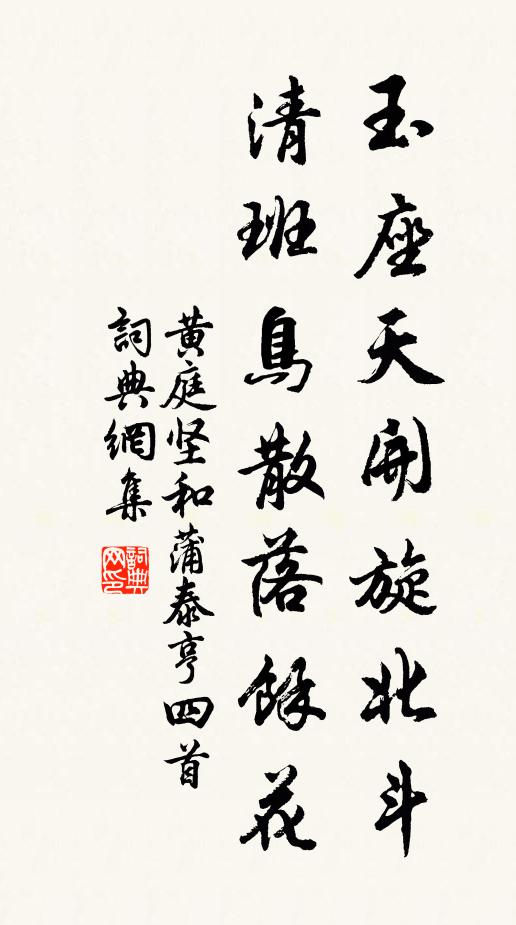 玉座天開旋北斗
清班鳥散落餘花
黄庭坚和蒲泰亨四首
詞典網集
詞典网印